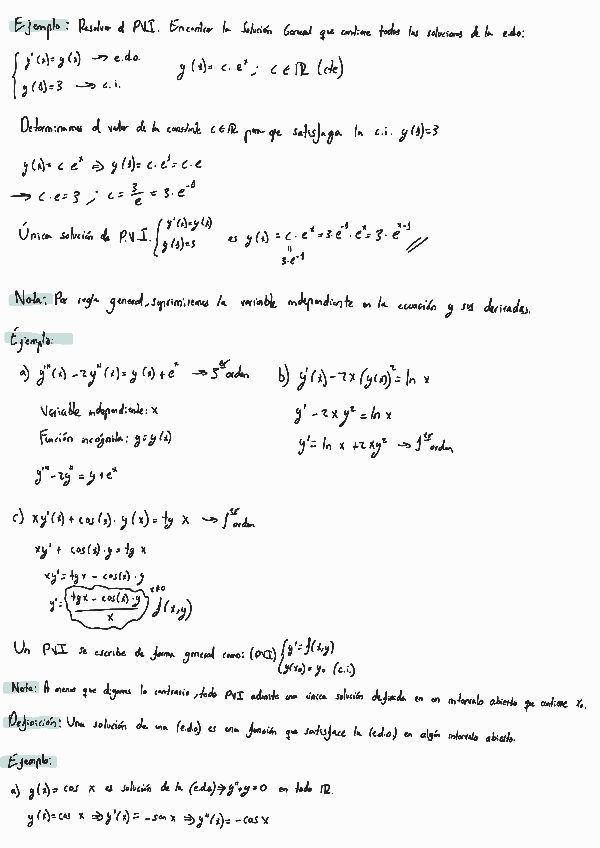 Ejemplo: Resolver el P.V.I. Encontrar la Solución General que contiene todas las soluciones de la e.d.o:
{ y'(x)=y(x) → e.d.o.   y(x)= c·eˣ ; c∈ℝ (cte)
y(1)=3 → c.i.
Determinamos el valor de la constante c∈ℝ para que satisfaga la c.i. y(1)=3
y(x)=c·eˣ ⇒ y(1)=c·e¹=c·e
→ c·e=3 ; c=3/e = 3·e⁻¹
Única solución de P.V.I. { y'(x)=y(x) y(1)=3 es y(x)=c·eˣ=3·e⁻¹·eˣ=3·eˣ⁻¹
3·e⁻¹
Nota: Por regla general, suprimiremos la variable independiente en la ecuación y sus derivadas.
Ejemplo:
a) y'''(x) - 2y''(x) = y(x) + eˣ → 3er orden   b) y'(x) - 2x(y(x))² = ln x
Variable independiente: x   y' - 2xy² = ln x
Función incógnita: y=y(x)   y' = ln x + 2xy² → 1er orden
y''' - 2y'' = y + eˣ
c) xy'(x) + cos(x)·y(x) = tg x → 1er orden
xy' + cos(x)·y = tg x
xy' = tg x - cos(x)·y
y' = (tg x - cos(x)·y)/x x≠0 f(x,y)
Un PVI se escribe de forma general como: (PVI) { y'=f(x,y) y(x₀)=y₀ (c.i)
Nota: A menos que digamos lo contrario, todo PVI admite una única solución definida en un intervalo abierto que contiene x₀.
Definición: Una solución de una (e.d.o) es una función que satisface la (e.d.o) en algún intervalo abierto.
Ejemplo:
a) y(x) = cos x es solución de la (e.d.o) ⇒ y''+y=0 en todo ℝ.
y(x)=cos x ⇒ y'(x) = -sen x ⇒ y''(x) = -cos x